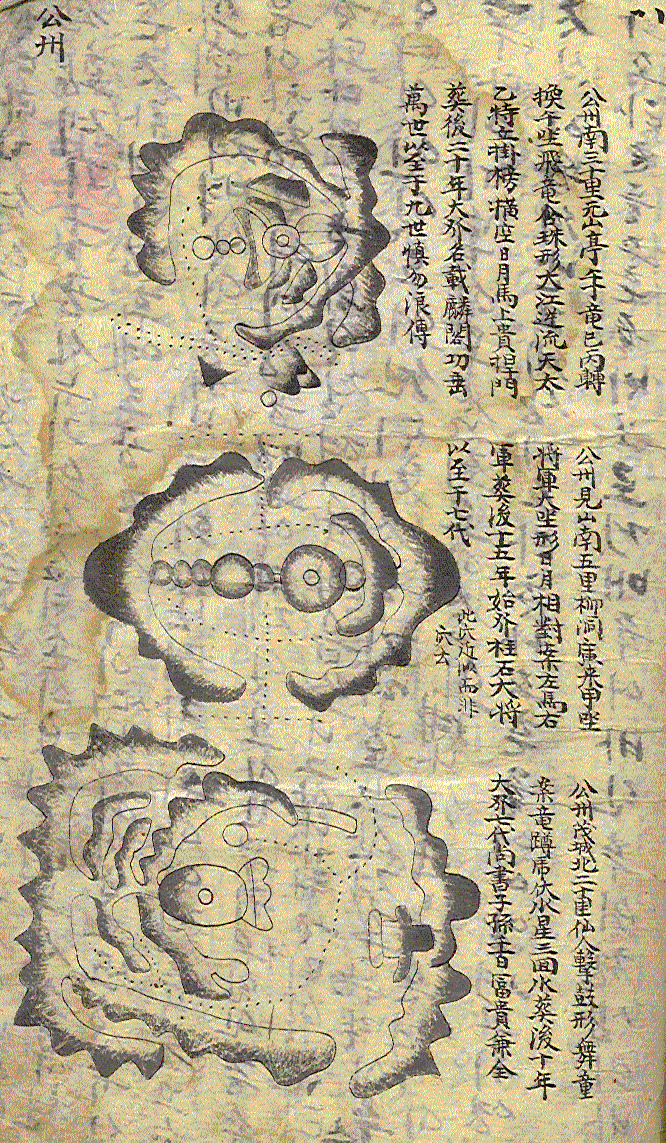 公州
公州南三十里元山亭子龍巳丙轉
換午坐飛龍含珠形大江逆流天太
乙特立掛榜橫案日月馬上貴祖門
葬後二十年大發名載麟閣功垂
萬世以至于九世慎勿浪傳
公州見山南五里柳洞庚來甲坐
將軍大坐形日月相對案左馬右
軍葬後十五年始發柱石大將
以至于七代
此穴 似而非
穴云
公州茂城北二十里仙人擊鼓形舞童
案龍蹲虎伏水星三回水葬後十年
大發七代尚書子孫千百富貴兼全